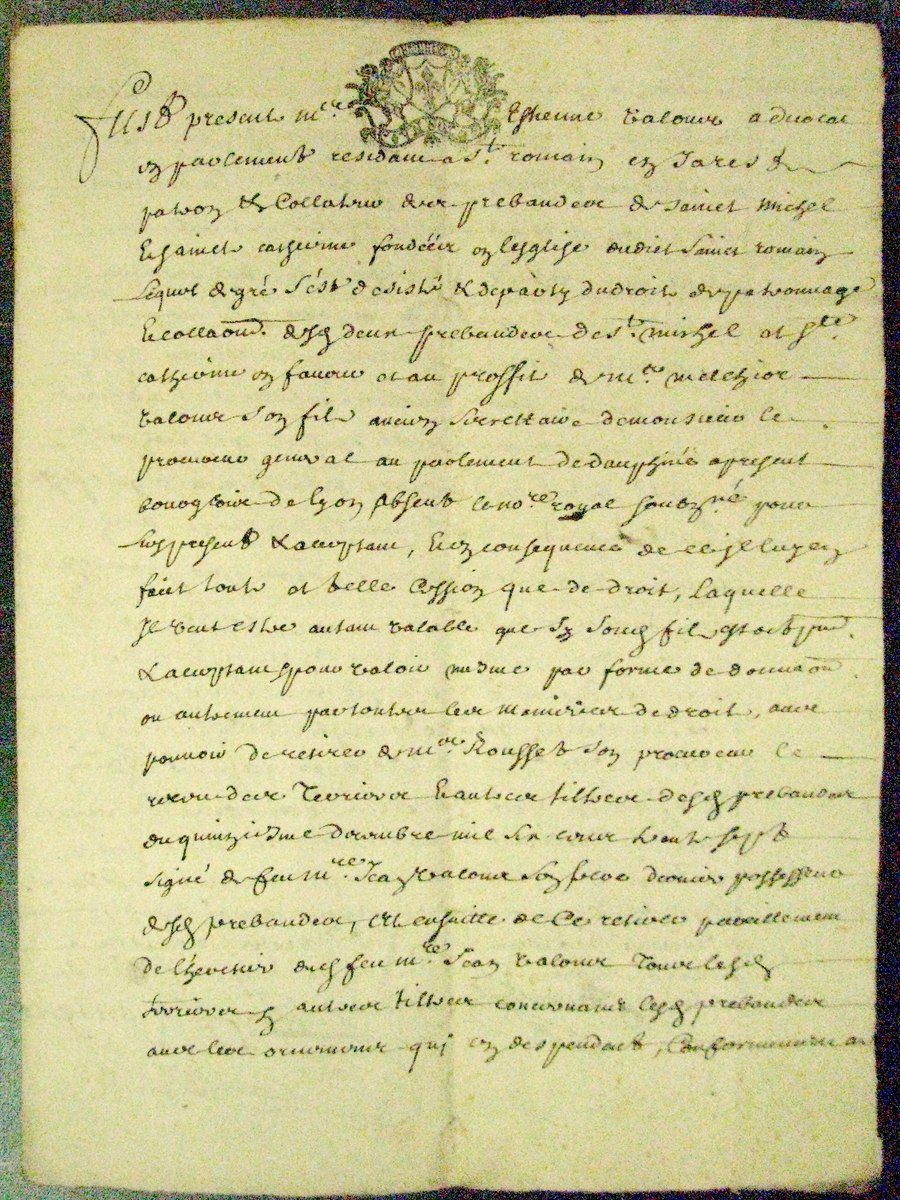 Fust present m.re Estienne Valous advocat
en parlement residant a S.t romain en Jarés &
patron & Collateur des prebandes de sainct michel
& sainct catherine fondéés en lesglise dudict sainct romain
Lequel de gré s'est desisté & départy du droit de patronnage
& collaon. desd deux prebandes de s.t michel et s.te
catherine en faveur et au proffit de m.re melchior
valous son fils ancien secrettaire de monsieur le
procureur general au parlement de dauphiné a present
bourgeois de lyon absent le no.re royal soubz.né pour
luy present & acceptant, & en consequence de ce il luy en
faict toute et telle cession que de droit, laquelle
Il veut estre autant valable que sy sond fils estoit pnt.
& acceptant pour valoir mesme par forme de donnaon.
ou autrement par toutes les manieres de droit, avec
pouvoir de retirer de m.re Rousset son procureur le
receu des terriers & autres tiltres desd prebandes
du quinziesme decembre mil six cens trente sept
signé de feu m.re Jean Valous son frere dernier possesseur
desd prebandes, et ensuitte de ce retirer pareillement
de l'heritier dud feu m.re Jean Valous tous lesd
terriers & autres tiltres concernants lesd prebandes
avec les ornemens quj en despendent, Conformement au